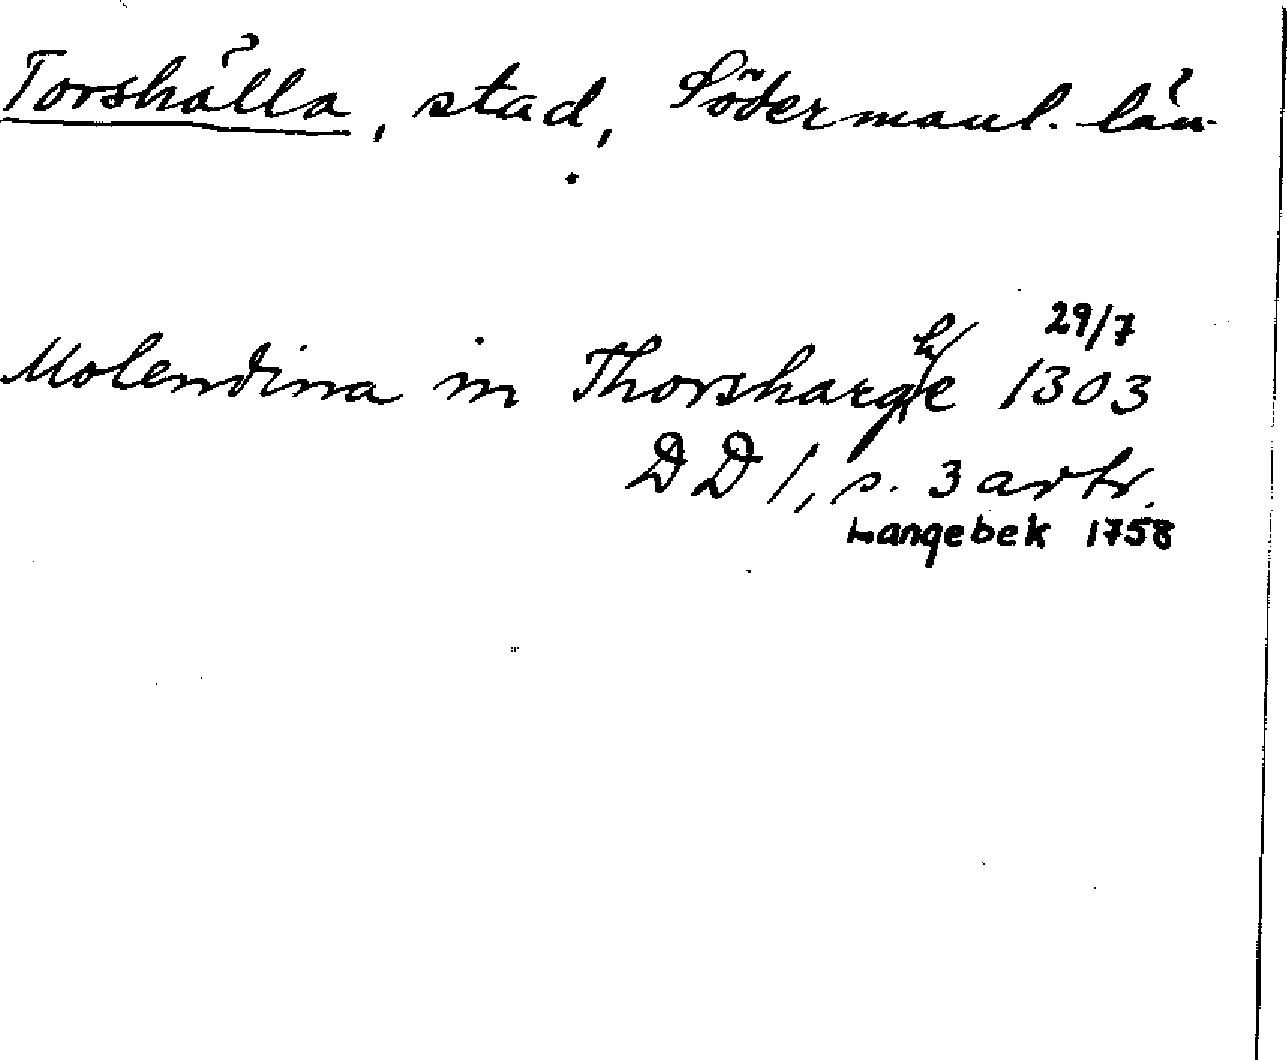 Torshälla, stad, Södermanl. län
Molendina in Thorsharghe 29/7 1303
DD 1, s. 3 avtr.
Langebek 1758